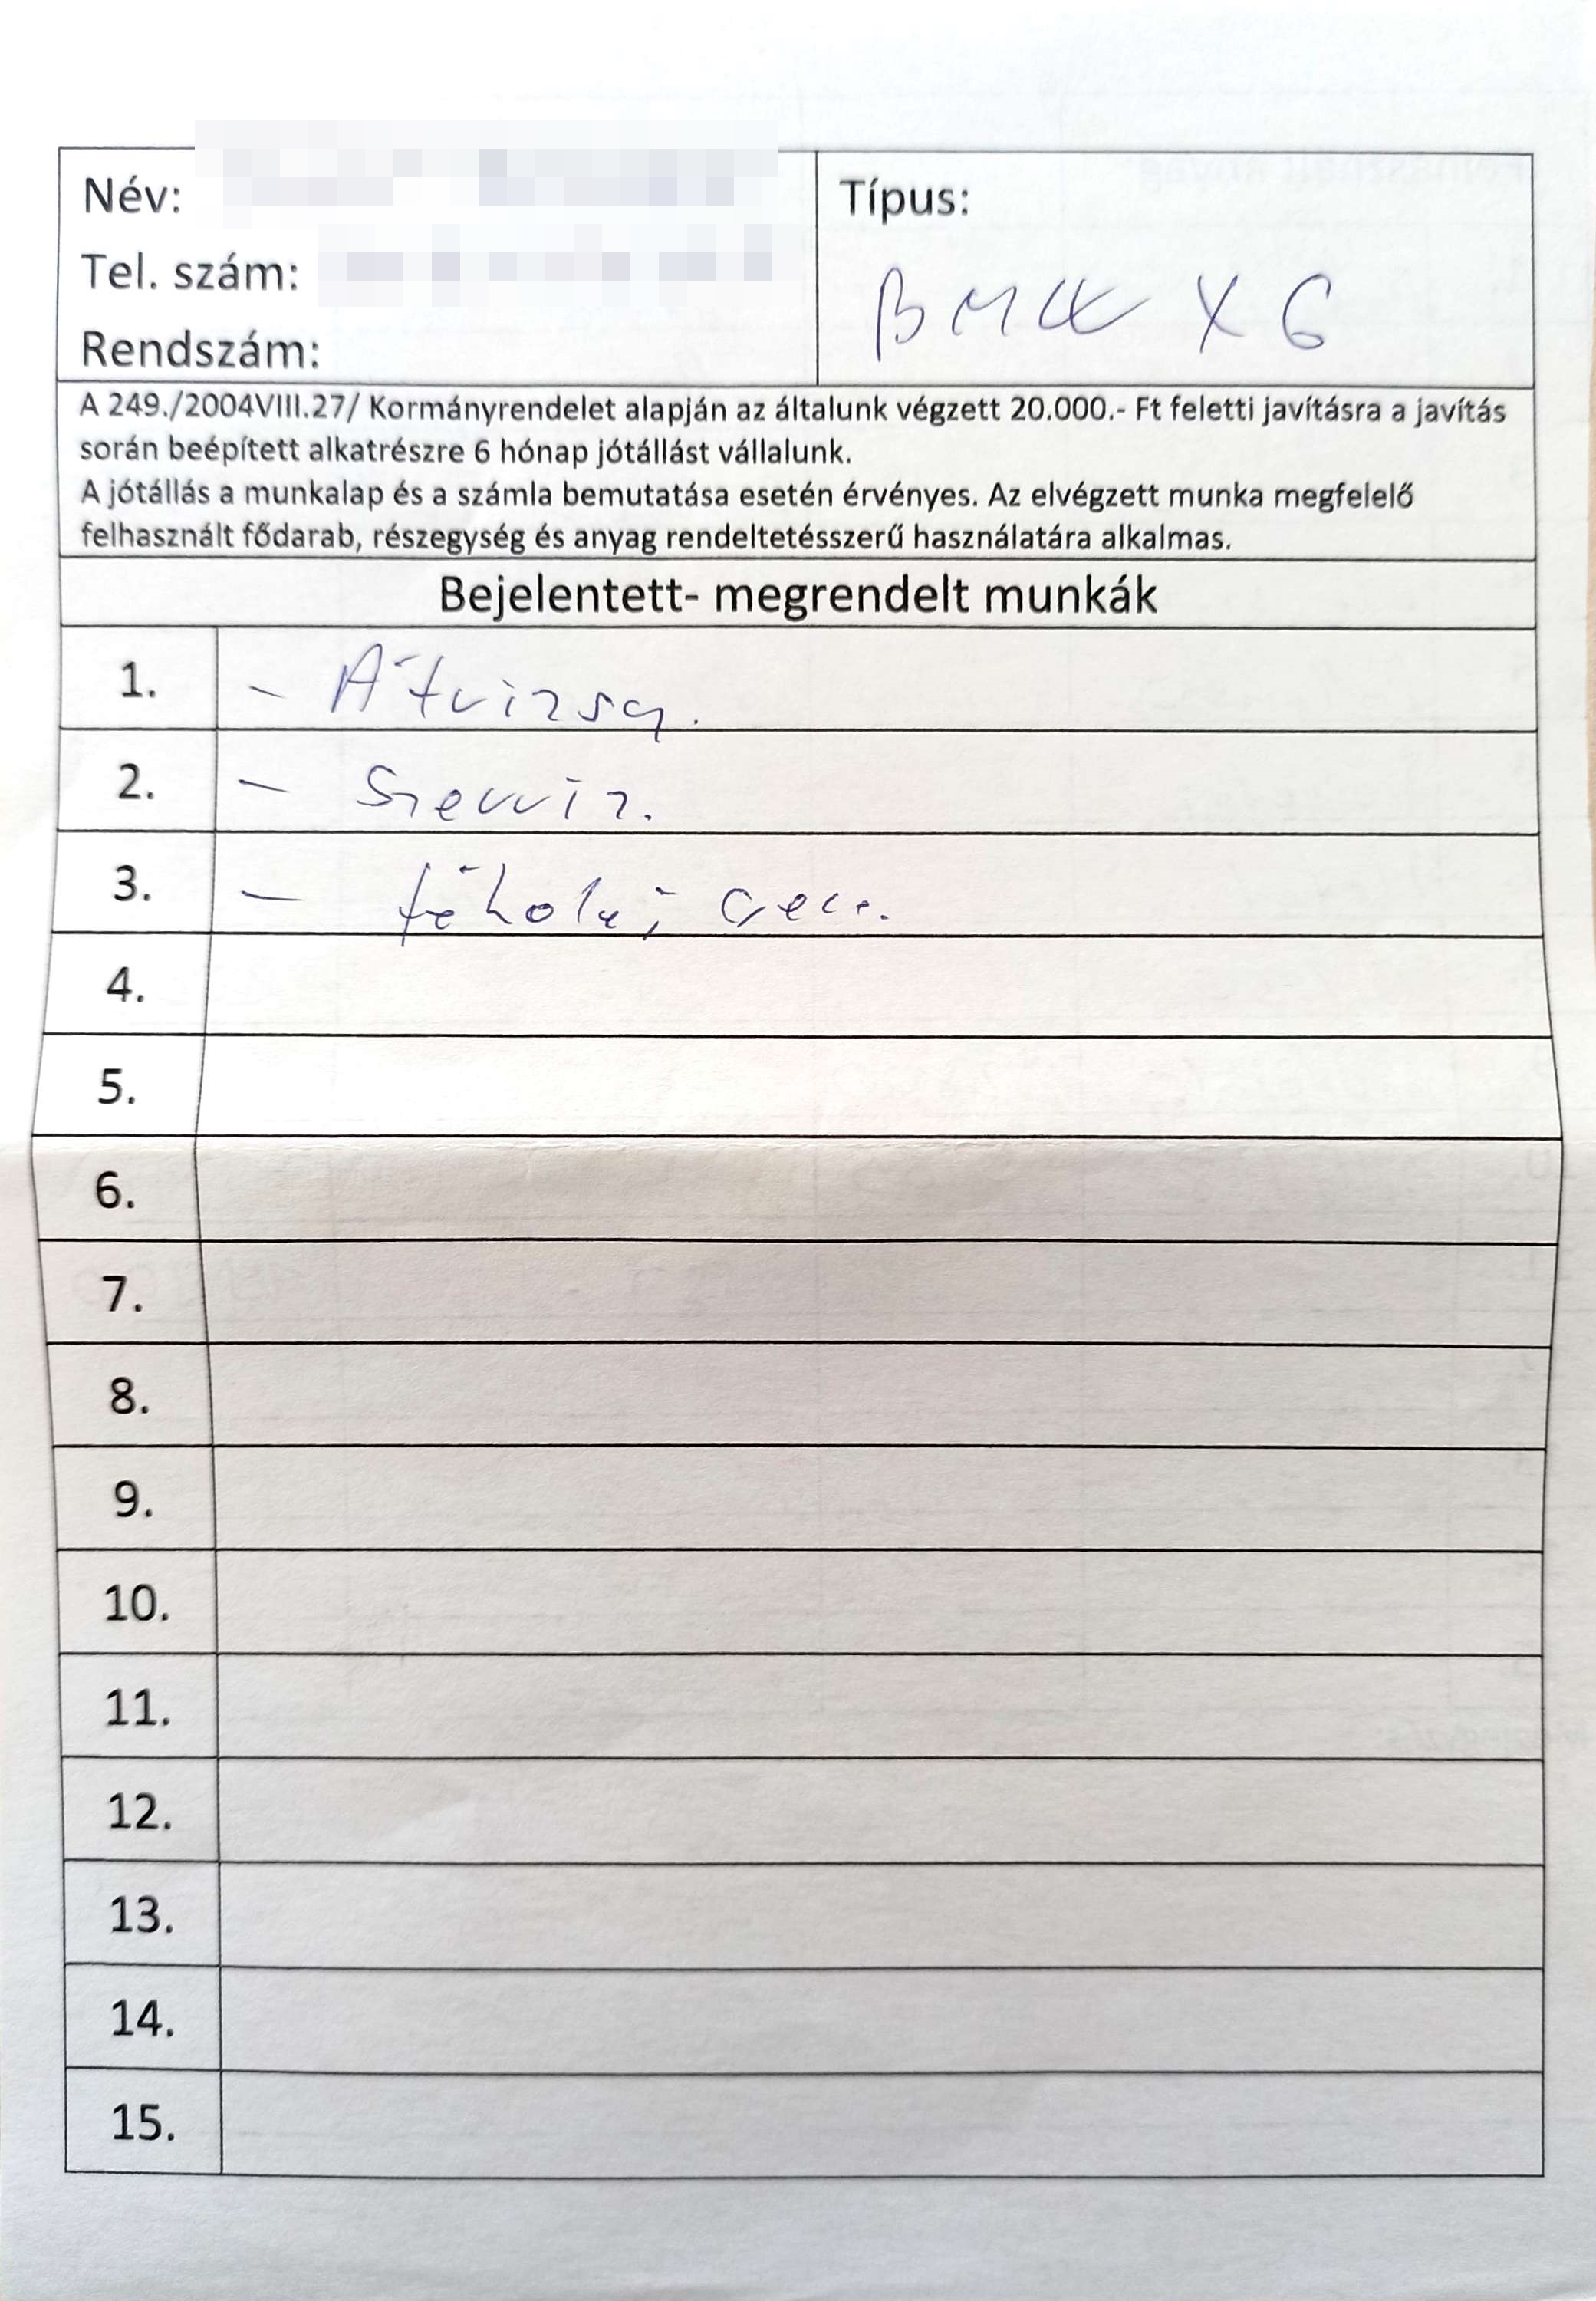 Név:
Tel. szám:
Rendszám:
Típus:
BMW X6
A 249./2004VIII.27/ Kormányrendelet alapján az általunk végzett 20.000.- Ft feletti javításra a javítás
során beépített alkatrészre 6 hónap jótállást vállalunk.
A jótállás a munkalap és a számla bemutatása esetén érvényes. Az elvégzett munka megfelelő
felhasznált fődarab, részegység és anyag rendeltetésszerű használatára alkalmas.
Bejelentett- megrendelt munkák
1. - Átvizsg.
2. - Szerviz.
3. - fékolaj csere.
4.
5.
6.
7.
8.
9.
10.
11.
12.
13.
14.
15.